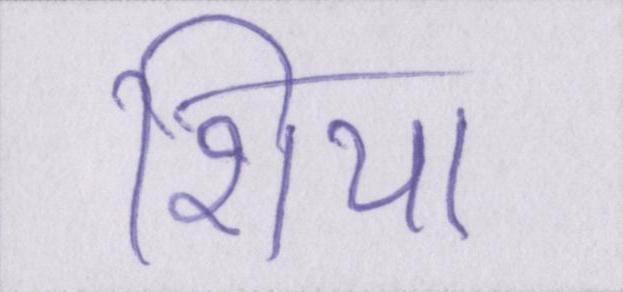 शिया